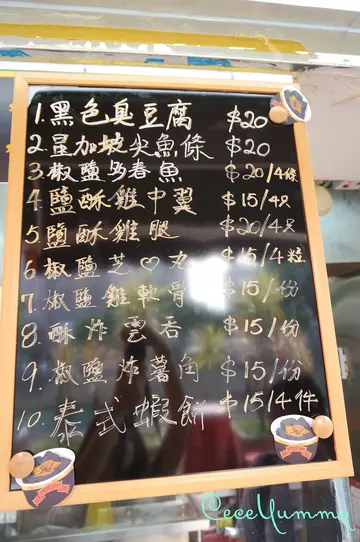 1. 黑色臭豆腐 $20
2. 星加坡尖魚條 $20
3. 椒鹽多春魚 $20/4條
4. 鹽酥雞中翼 $15/4只
5. 鹽酥雞腿 $20/4只
6. 椒鹽芝♡丸 $15/4粒
7. 椒鹽雞軟骨 $15/份
8. 酥炸雲吞 $15/份
9. 椒鹽炸薯角 $15/份
10. 泰式蝦餅 $15/4件
CeceYummy